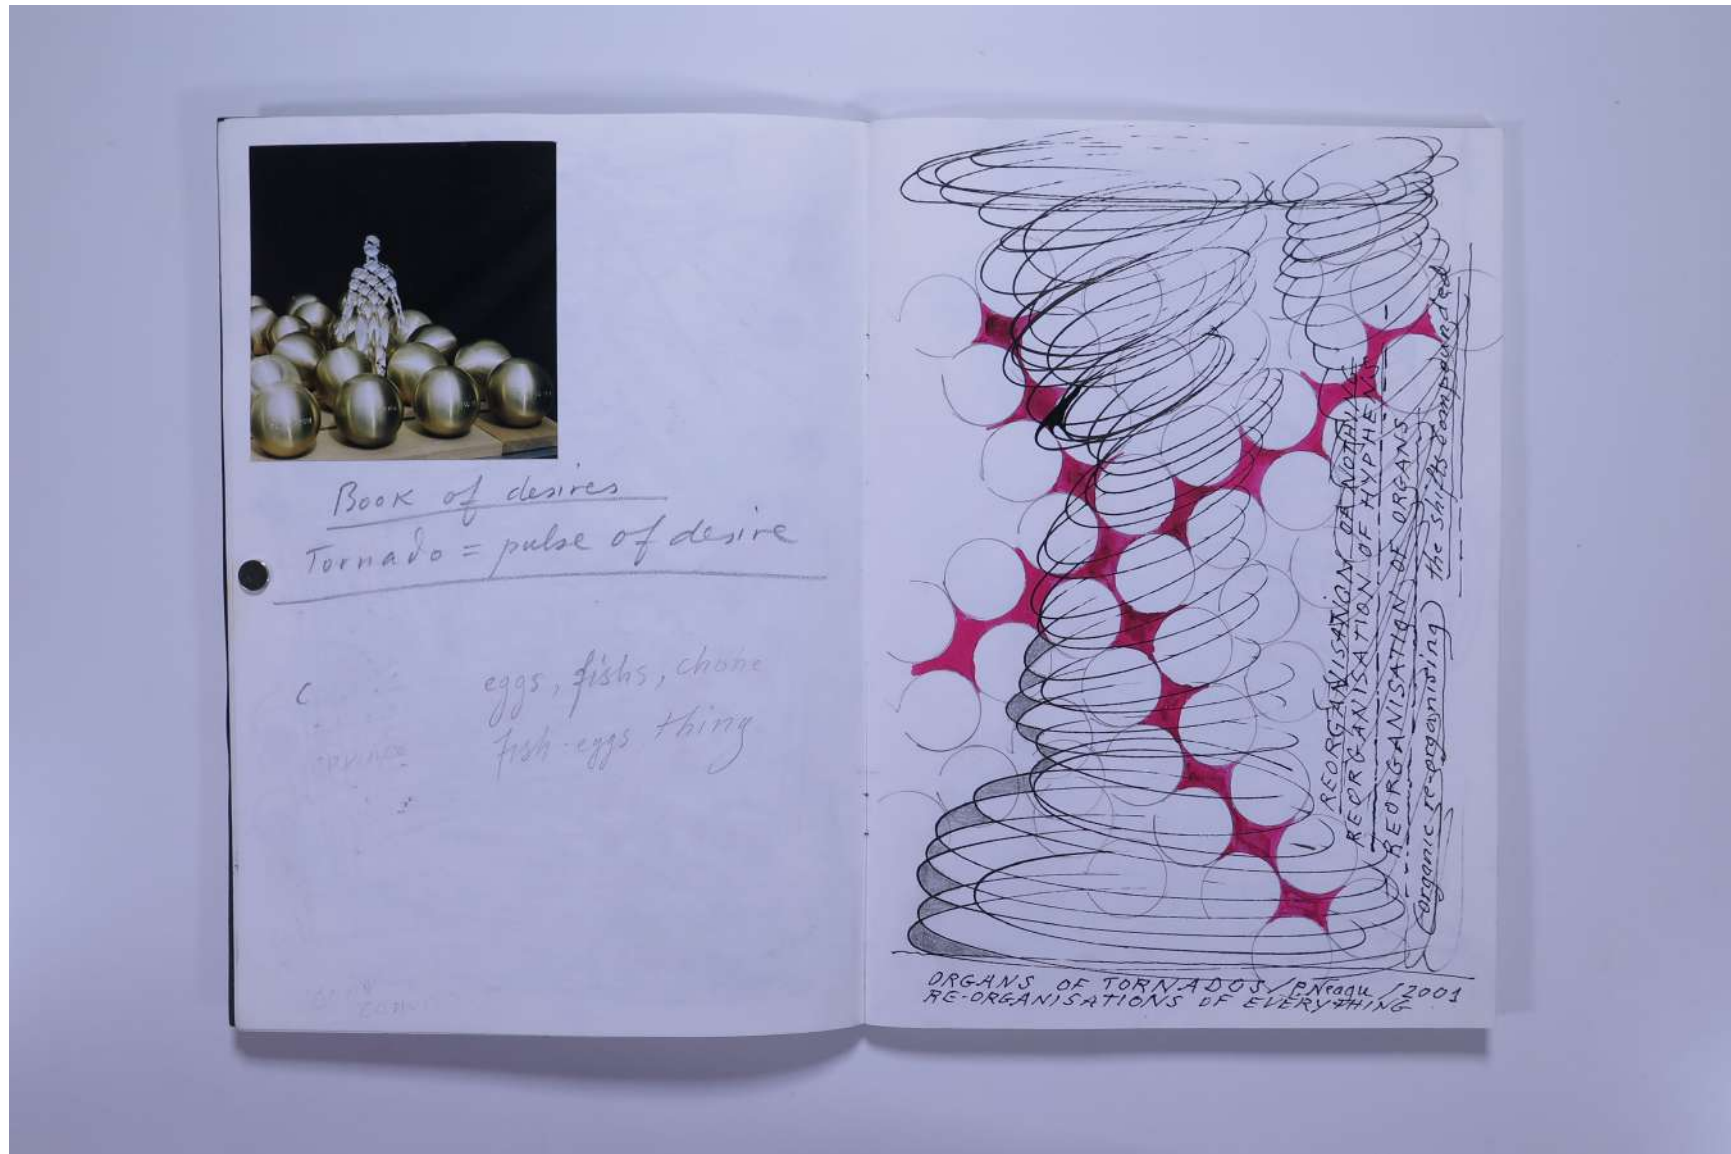 Book of desires
Tornado = pulse of desire
eggs, fishs, chone
fish-eggs thing
REORGANISATION OF NOTHING
REORGANISATION OF HYPHENS
REORGANISATION OF ORGANS
(organic re-organising) the shifts compounded
ORGANS OF TORNADOS / PNeagu / 2001
RE-ORGANISATIONS OF EVERYTHING